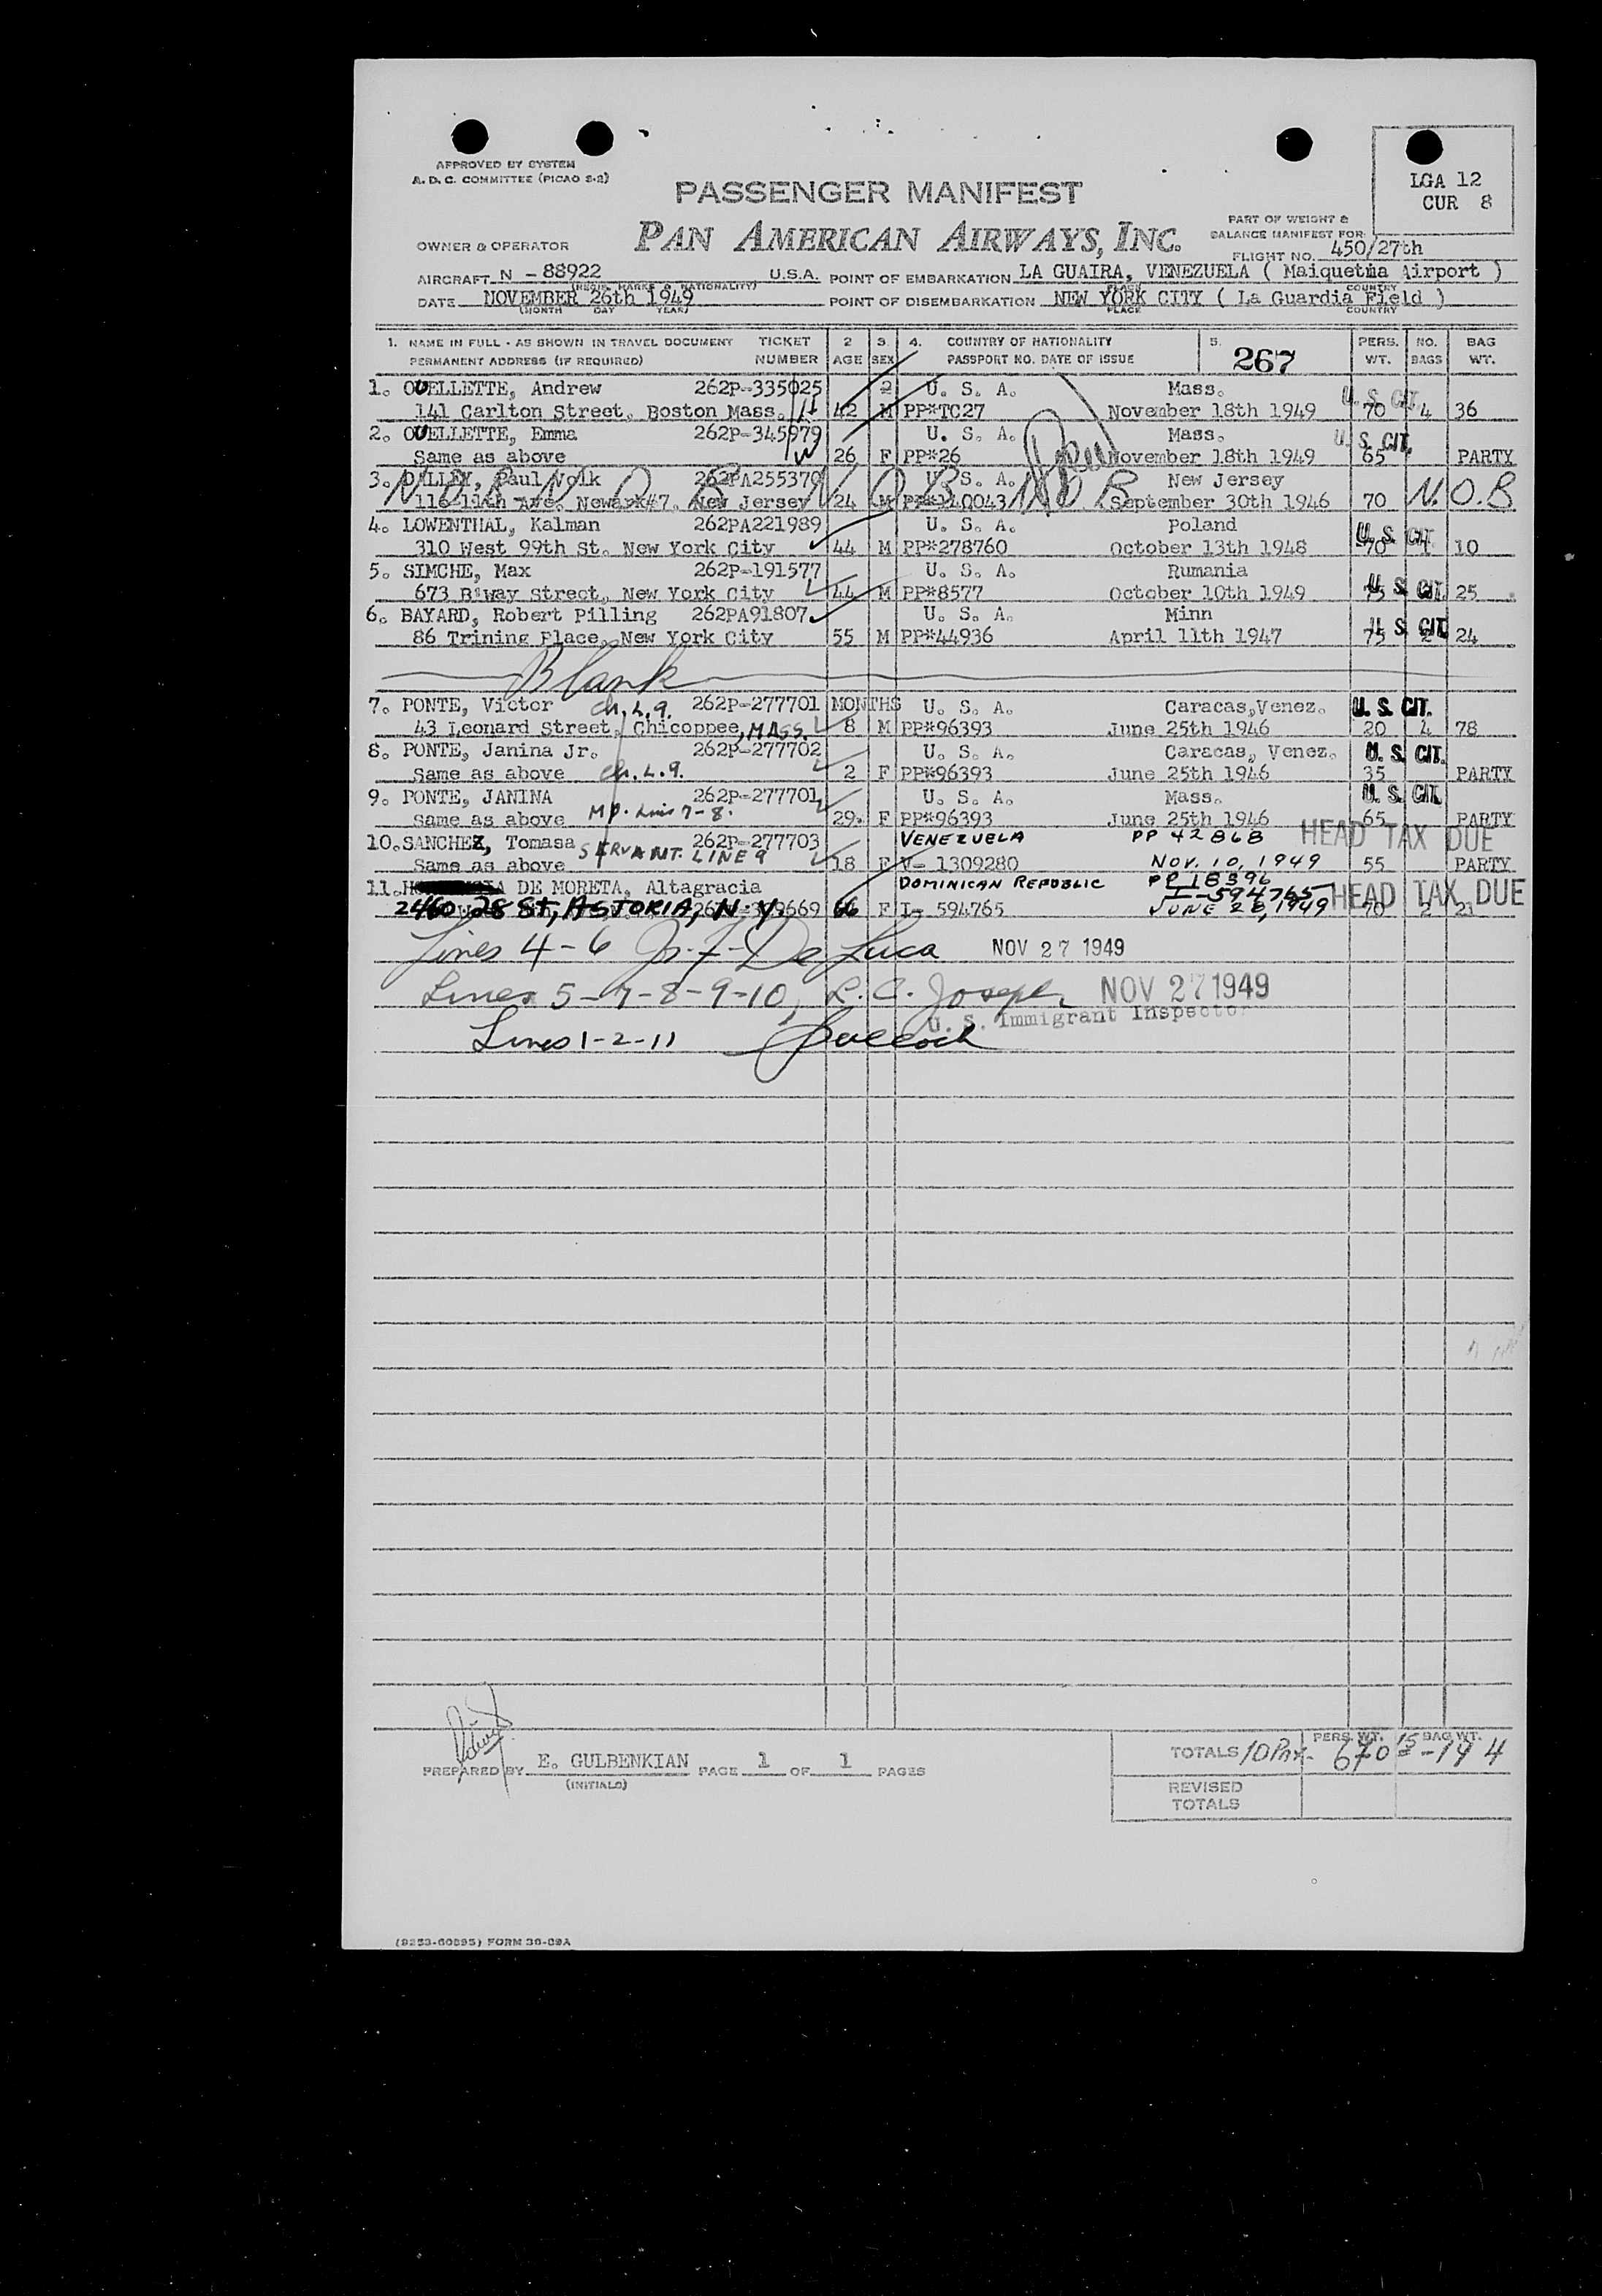 APPROVED BY SYSTEM
A. D. C. COMMITTEE (PICAO S-2)
LGA 12
CUR 8
PASSENGER MANIFEST
PAN AMERICAN AIRWAYS, INC.
PART OF WEIGHT &
BALANCE MANIFEST FOR
OWNER & OPERATOR
FLIGHT NO. 450/27th
AIRCRAFT N - 88922 U.S.A. POINT OF EMBARKATION LA GUAIRA, VENEZUELA ( Maiquetia Airport )
(REGIS. MARKS & NATIONALITY) PLACE COUNTRY
DATE NOVEMBER 26th 1949 POINT OF DISEMBARKATION NEW YORK CITY ( La Guardia Field )
(MONTH DAY YEAR) PLACE COUNTRY
1. NAME IN FULL - AS SHOWN IN TRAVEL DOCUMENT TICKET 2 3. 4. COUNTRY OF NATIONALITY 5. PERS. NO. BAG
PERMANENT ADDRESS (IF REQUIRED) NUMBER AGE SEX PASSPORT NO. DATE OF ISSUE 267 WT. BAGS WT.
1. OUELLETTE, Andrew 262P-335025 2 U. S. A. Mass. U. S. CIT.
141 Carlton Street, Boston Mass. 42 M PP*TC27 November 18th 1949 70 4 36
2. OUELLETTE, Emma 262P-345979 U. S. A. Mass. U. S. CIT.
Same as above 26 F PP*26 November 18th 1949 65 PARTY
3. Paul Volk 262PA255379 U. S. A. New Jersey
N O B N O B N O B N.O.B
116 11th Ave. Newark*7, New Jersey 24 M September 30th 1946 70
4. LOWENTHAL, Kalman 262PA221989 U. S. A. Poland U. S. CIT.
310 West 99th St. New York City 44 M PP*278760 October 13th 1948 70 1 10
5. SIMCHE, Max 262P-191577 U. S. A. Rumania
673 B'way street, New York City 44 M PP*8577 October 10th 1949 75 U. S. CIT. 25
6. BAYARD, Robert Pilling 262PA91807 U. S. A. Minn
86 Trining Place, New York City 55 M PP*44936 April 11th 1947 75 2 U. S. CIT. 24
Blank
7. PONTE, Victor Ch. L.9. 262P-277701 MONTHS U. S. A. Caracas,Venez. U. S. CIT.
43 Leonard Street, Chicoppee, MASS. 8 M PP*96393 June 25th 1946 20 4 78
8. PONTE, Janina Jr. 262P-277702 U. S. A. Caracas, Venez. U. S. CIT.
Same as above Ch. L.9. 2 F PP*96393 June 25th 1946 35 PARTY
9. PONTE, JANINA 262P-277701 U. S. A. Mass. U. S. CIT.
Same as above 7-8. 29. F PP*96393 June 25th 1946 65 PARTY
10. SANCHEZ, Tomasa 262P-277703 VENEZUELA PP 42868 HEAD TAX DUE
Same as above SERVANT. LINE 9 18 F V- 1309280 NOV. 10, 1949 55 PARTY
11. DE MORETA, Altagracia DOMINICAN REPUBLIC PP 18396
I-594765 HEAD TAX DUE
2460 28 ST, ASTORIA, N.Y. 66 F I- 594765 JUNE 28, 1949 70 2 21
Lines 4-6 De Luca NOV 27 1949
Lines 5-7-8-9-10, R. C. Joseph NOV 27 1949
U. S. Immigrant Inspector
Lines 1-2-11
PREPARED BY E. GULBENKIAN PAGE 1 OF 1 PAGES
(INITIALS)
PERS. WT. BAG WT.
TOTALS 10 Pax- 670 15-194
REVISED
TOTALS
FORM 30-09A